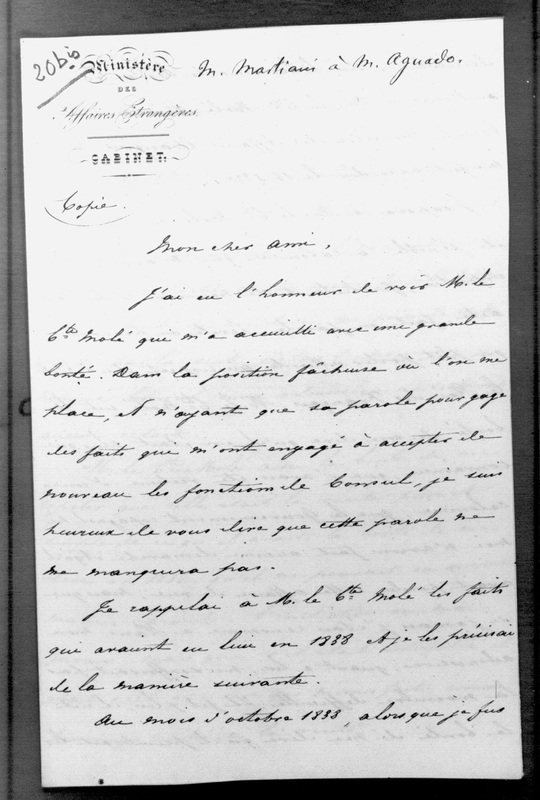 20 bis
Ministère
DES
Affaires Étrangères.
CABINET.
M. Marliani à M. Aguado.
Copie.
Mon cher ami,
J'ai eu l'honneur de voir M. le
Cte Molé qui m'a accueilli avec une grande
bonté. Dans la position fâcheuse où l'on me
place, et n'ayant que sa parole pour gage
des faits qui m'ont engagé à accepter de
nouveau les fonctions de Consul, je suis
heureux de vous dire que cette parole ne
me manquera pas.
Je rappelai à M. le Cte Molé les faits
qui avaient eu lieu en 1838 et je les précisai
de la manière suivante.
Au mois d'octobre 1838, alors que je fus